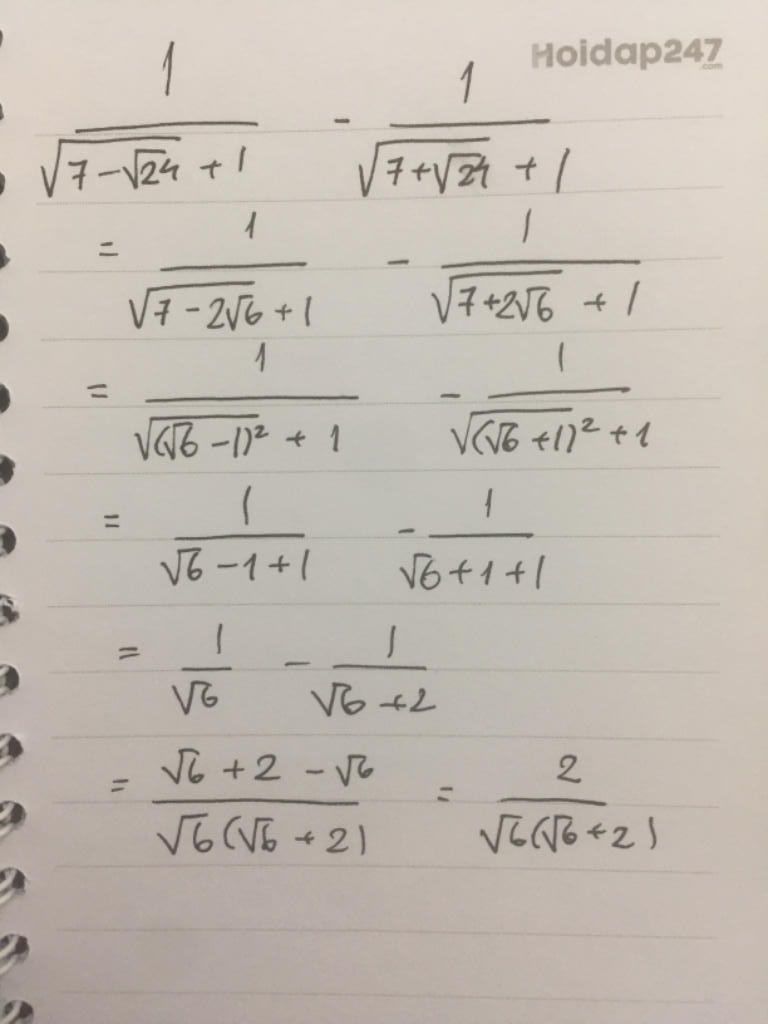 Hoidap247
.com
1/(√(7-√24) + 1) - 1/(√(7+√24) + 1)
= 1/(√(7-2√6) + 1) - 1/(√(7+2√6) + 1)
= 1/(√((√6-1)²) + 1) - 1/(√((√6+1)²) + 1)
= 1/(√6-1+1) - 1/(√6+1+1)
= 1/√6 - 1/(√6+2)
= (√6+2-√6)/(√6(√6+2)) = 2/(√6(√6+2))